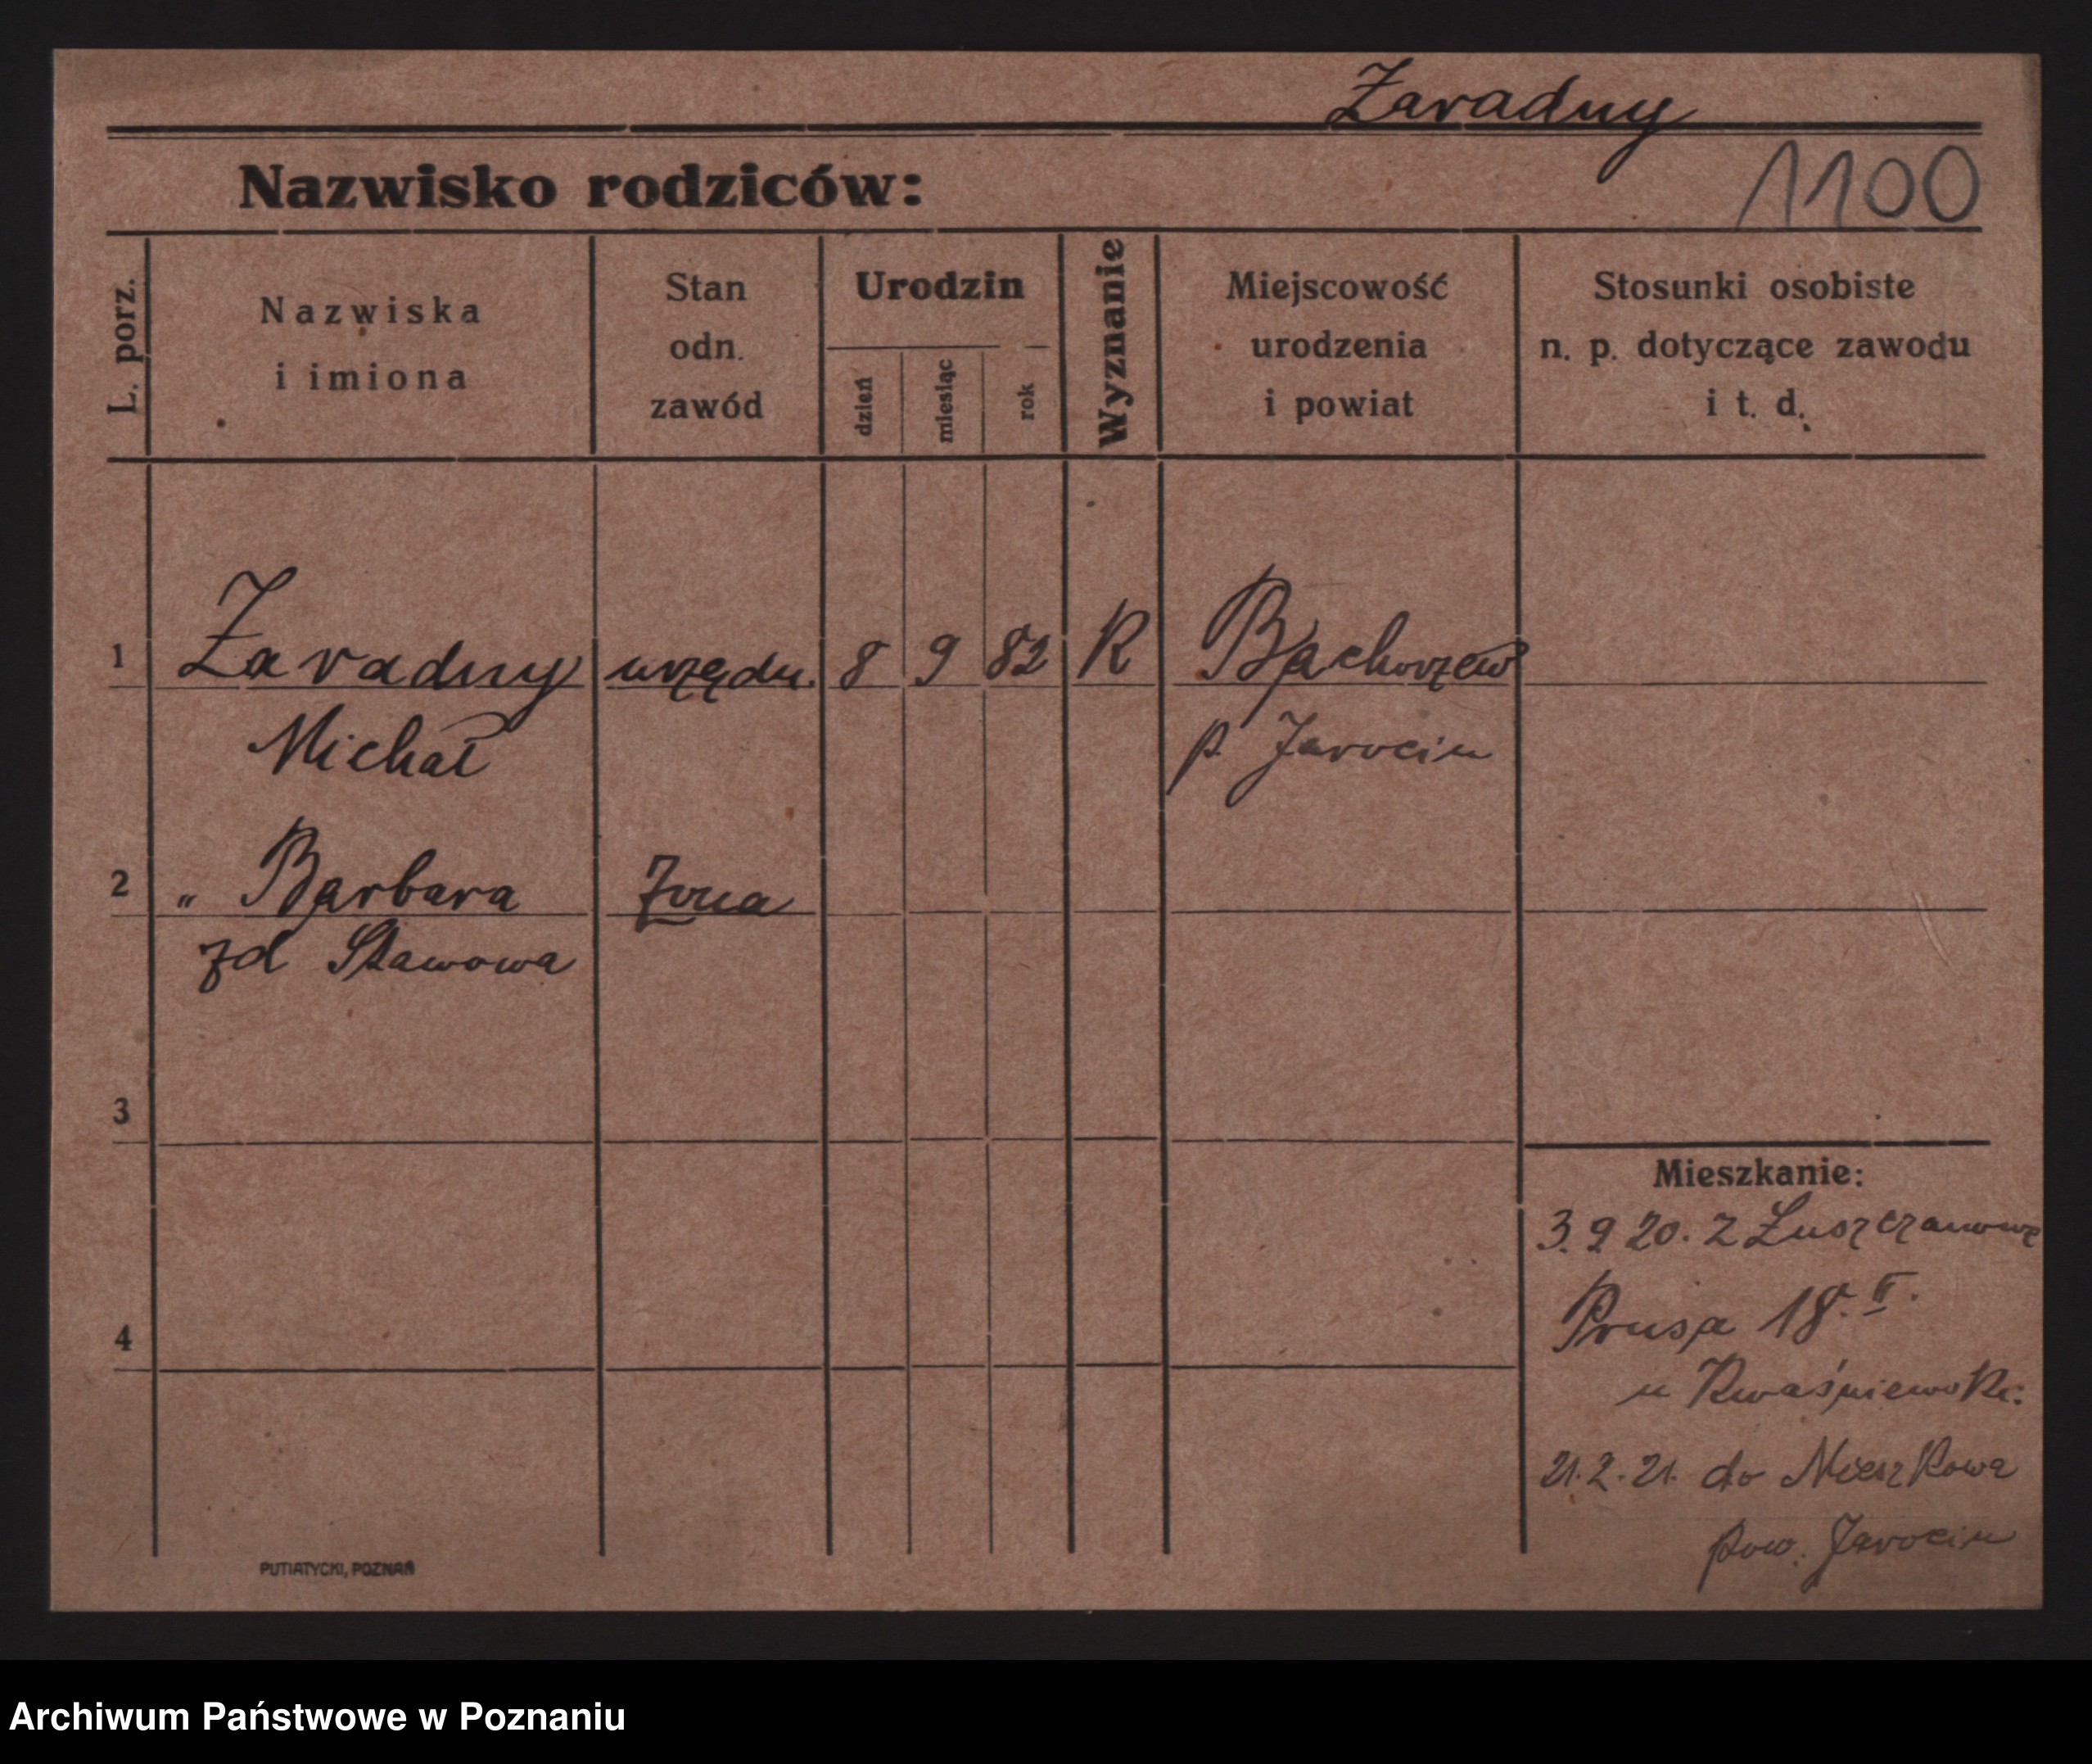 Zaradny
Nazwisko rodziców:
1100
L. porz.
Nazwiska
i imiona
Stan
odn.
zawód
Urodzin
dzień
miesiąc
rok
Wyznanie
Miejscowość
urodzenia
i powiat
Stosunki osobiste
n. p. dotyczące zawodu
i t. d.
1 Zaradny urzędn. 8 9 82 R Bachorzew
Michał p. Jarocin
2 " Barbara Żona
zd Stawowa
3
4
Mieszkanie:
3. 9 20. z Łuszczanowa
Prusa 18. II.
u Kwaśniewski:
21. 2. 21. do Mieszkowa
pow. Jarocin
PUTIATYCKI, POZNAŃ
Archiwum Państwowe w Poznaniu